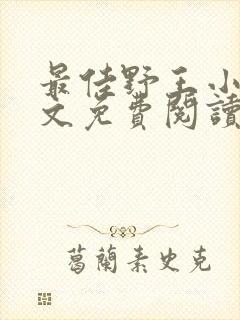 最佳野王小
文免費閱讀
葛蘭素史克